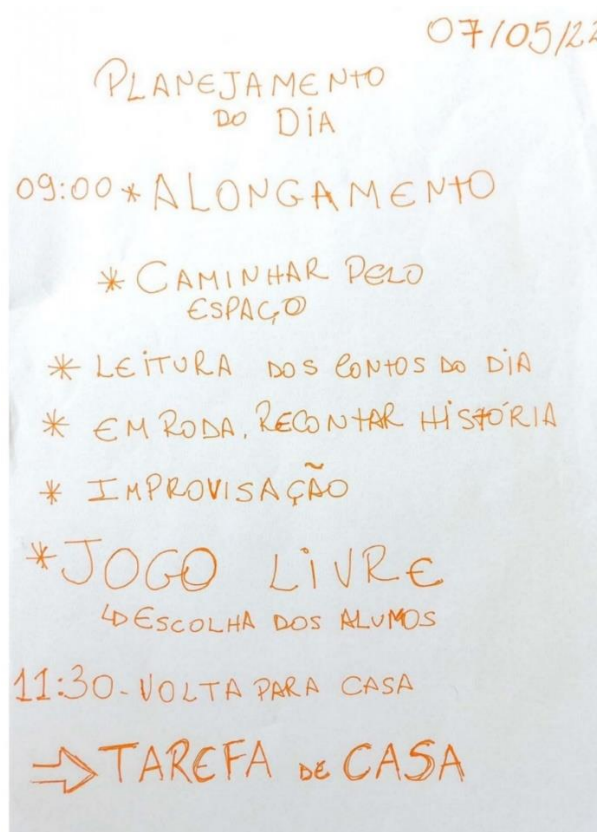 07/05/22
PLANEJAMENTO
DO DIA
09:00 * ALONGAMENTO
* CAMINHAR PELO
ESPAÇO
* LEITURA DOS CONTOS DO DIA
* EM RODA, RECONTAR HISTÓRIA
* IMPROVISAÇÃO
* JOGO LIVRE
↳ ESCOLHA DOS ALUNOS
11:30 - VOLTA PARA CASA
⇨ TAREFA DE CASA